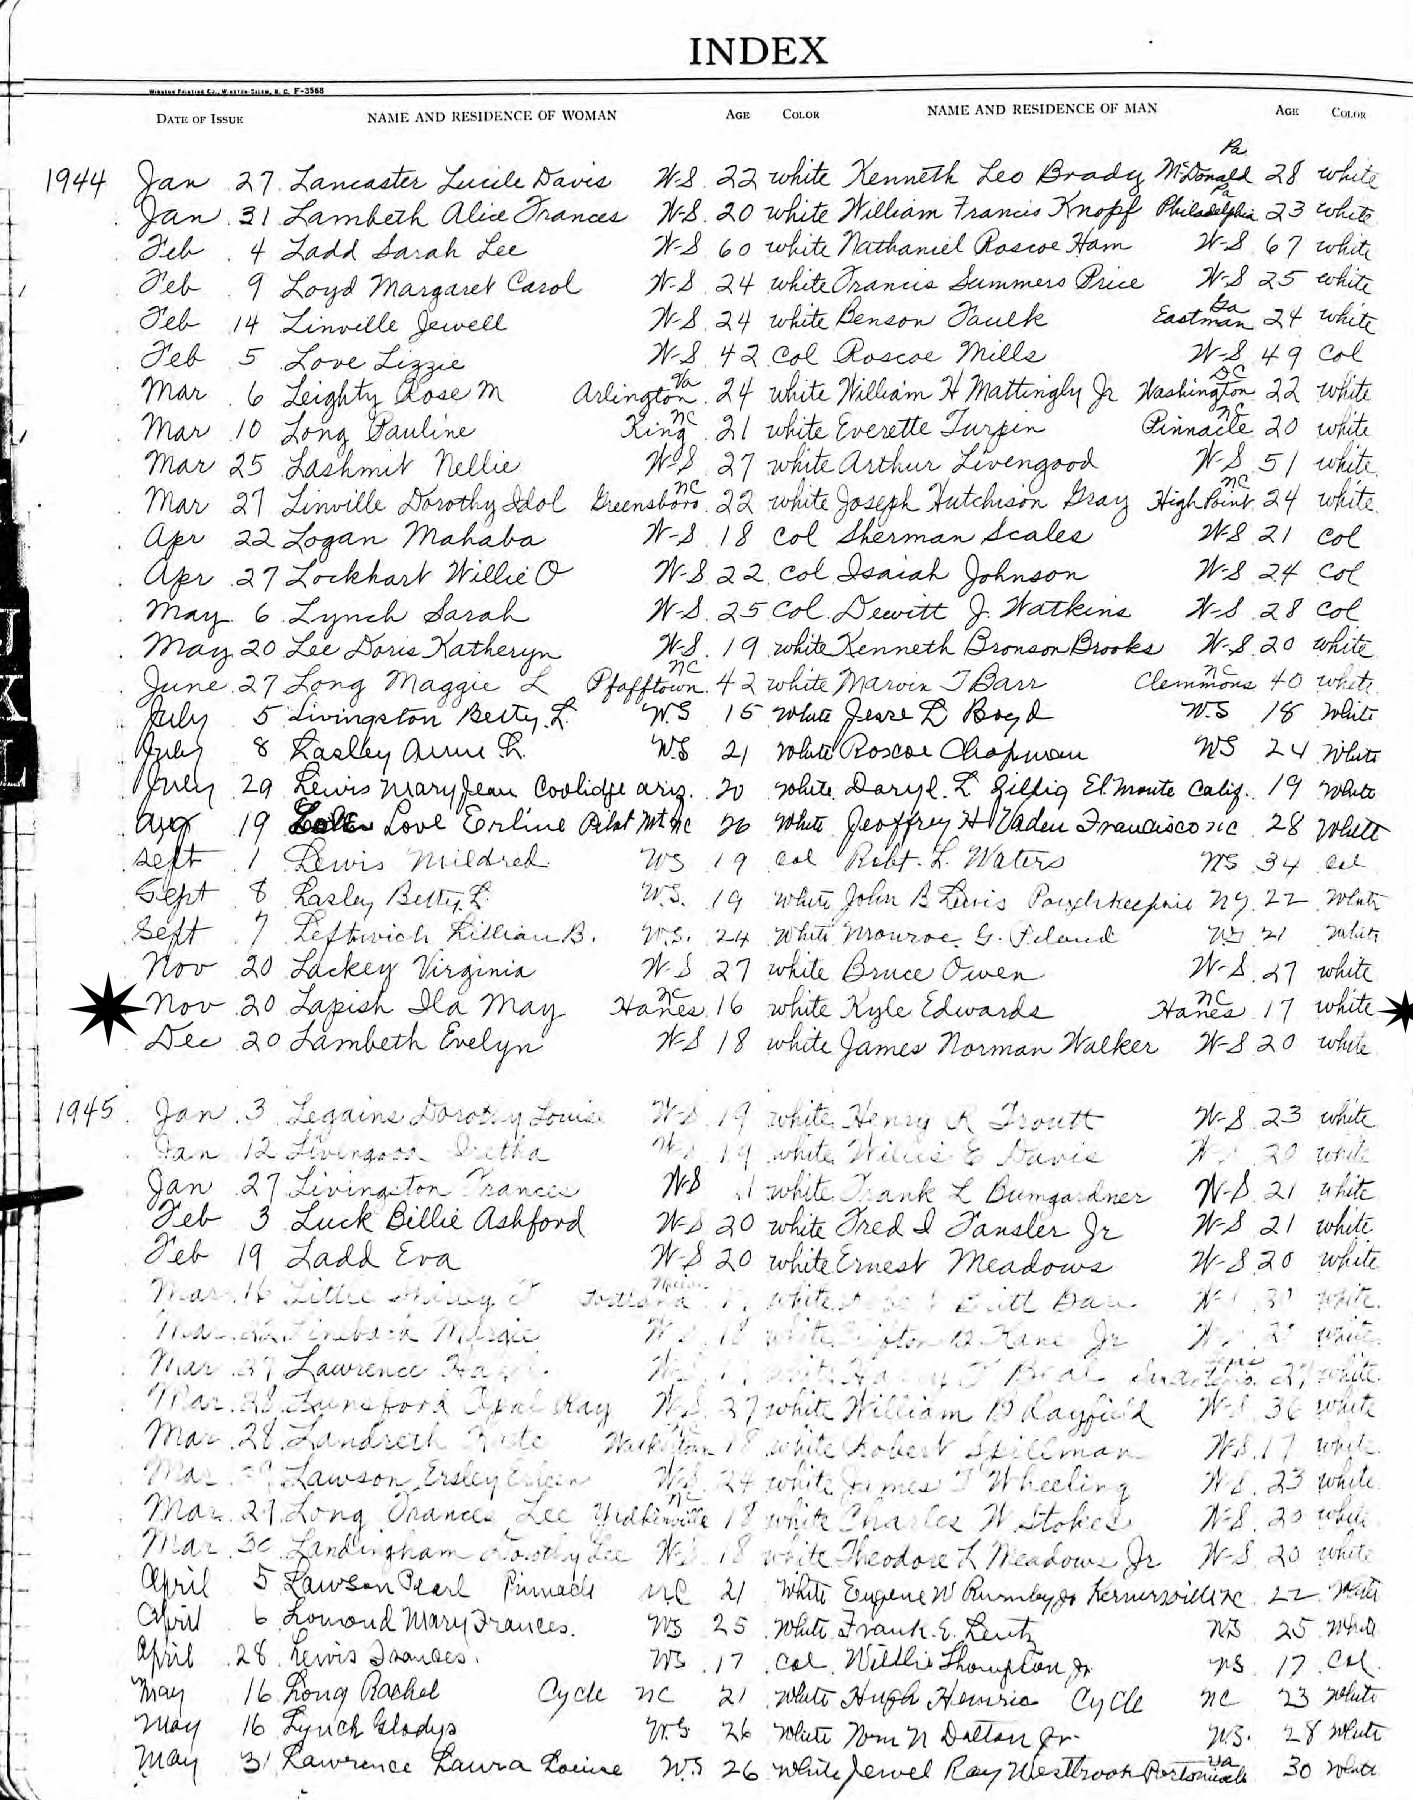 INDEX
Winston Printing Co., Winston-Salem, N. C. F-3568
DATE OF ISSUE NAME AND RESIDENCE OF WOMAN AGE COLOR NAME AND RESIDENCE OF MAN AGE COLOR
1944 Jan 27 Lancaster Lucile Davis W-S 22 white Kenneth Leo Brady McDonald Pa 28 white
Jan 31 Lambeth Alice Frances W-S 20 white William Francis Knopf Philadelphia Pa 23 white
Feb 4 Ladd Sarah Lee W-S 60 white Nathaniel Roscoe Ham W-S 67 white
Feb 9 Loyd Margaret Carol W-S 24 white Francis Summers Price W-S 25 white
Feb 14 Linville Jewell W-S 24 white Benson Faulk Eastman Ga 24 white
Feb 5 Love Lizzie W-S 42 Col Roscoe Mills W-S 49 Col
Mar 6 Leighty Rose M Arlington Va 24 white William H Mattingly Jr Washington DC 22 white
Mar 10 Long Pauline King NC 21 white Everette Turpin Pinnacle NC 20 white
Mar 25 Lashmit Nellie W-S 27 white Arthur Livengood W-S 51 white
Mar 27 Linville Dorothy Idol Greensboro NC 22 white Joseph Hutchison Gray High Point NC 24 white
Apr 22 Logan Mahaba W-S 18 Col Sherman Scales W-S 21 Col
Apr 27 Lockhart Willie O W-S 22 Col Isaiah Johnson W-S 24 Col
May 6 Lynch Sarah W-S 25 Col Dewitt J. Watkins W-S 28 Col
May 20 Lee Doris Katheryn W-S 19 white Kenneth Bronson Brooks W-S 20 white
June 27 Long Maggie L Pfafftown NC 42 white Marvin T Barr Clemmons NC 40 white
July 5 Livingston Betty L. W.S 15 White Jesse L Boyd W.S 18 White
July 8 Lasley Annie L. W.S 21 White Roscoe Chapman WS 24 White
July 29 Lewis Mary Jean Coolidge Ariz. 20 White Daryl L El Monte Calif. 19 White
Aug 19 Love Erline Pilot Mt NC 26 White Jeoffrey H Vaden Francisco NC 28 White
Sept 1 Lewis Mildred WS 19 Col Robt. L. Waters WS 34 Col
Sept 8 Lasley Betty L. W.S. 19 White John B Lewis Poughkeepsie NY. 22 White
Sept 7 Leftwich Lillian B. W.S. 24 White Monroe G. Peland WS 21 White
Nov 20 Lackey Virginia W-S 27 white Bruce Owen W-S 27 white
Nov 20 Lapish Ila May Hanes NC 16 white Kyle Edwards Hanes NC 17 white
Dec 20 Lambeth Evelyn W-S 18 white James Norman Walker W-S 20 white
1945 Jan 3 Legains Dorothy Louise W-S 19 white Henry R Troutt W-S 23 white
Jan 12 Livengood W-S 19 white Willie E Davis W-S 20 white
Jan 27 Livingston Frances W-S white Frank L Bumgardner W-S 21 white
Feb 3 Luck Billie Ashford W-S 20 white Fred I Fansler Jr W-S 21 white
Feb 19 Ladd Eva W-S 20 white Ernest Meadows W-S 20 white
Mar 16 Little Shirley white white
Mar Lineback Margie W-S 18 white Kane Jr white
Mar Lawrence W-S white
Mar Lunsford Opal Ray W-S 27 white William D Rayfield W-S 36 white
Mar 28 Landreth 18 white Robert Spillman W-S 17 white
Mar Lawson Ersley W-S 24 white James T Wheeling W-S 23 white
Mar 29 Long Frances Lee Yadkinville NC 18 white Charles W Stokes W-S 20 white
Mar 30 Landingham Dorothy Lee W-S 18 white Theodore L Meadows Jr W-S 20 white
April 5 Lawson Pearl Pinnacle NC 21 White Eugene W Jr Kernersville NC 22 White
April 6 Lomond Mary Frances. WS 25 White Frank E. Lentz WS 25 White
April 28 Lewis Frances. WS 17 Col. Willie Thompson Jr WS 17 Col.
May 16 Long Rachel Cycle NC 21 White Hugh Cycle NC 23 White
May 16 Lynch Gladys W.S 26 White Wm N Dalton Jr W.S. 28 White
May 31 Lawrence Laura Louise W.S 26 White Jewel Ray Westbrook Va 30 White
J
K
L